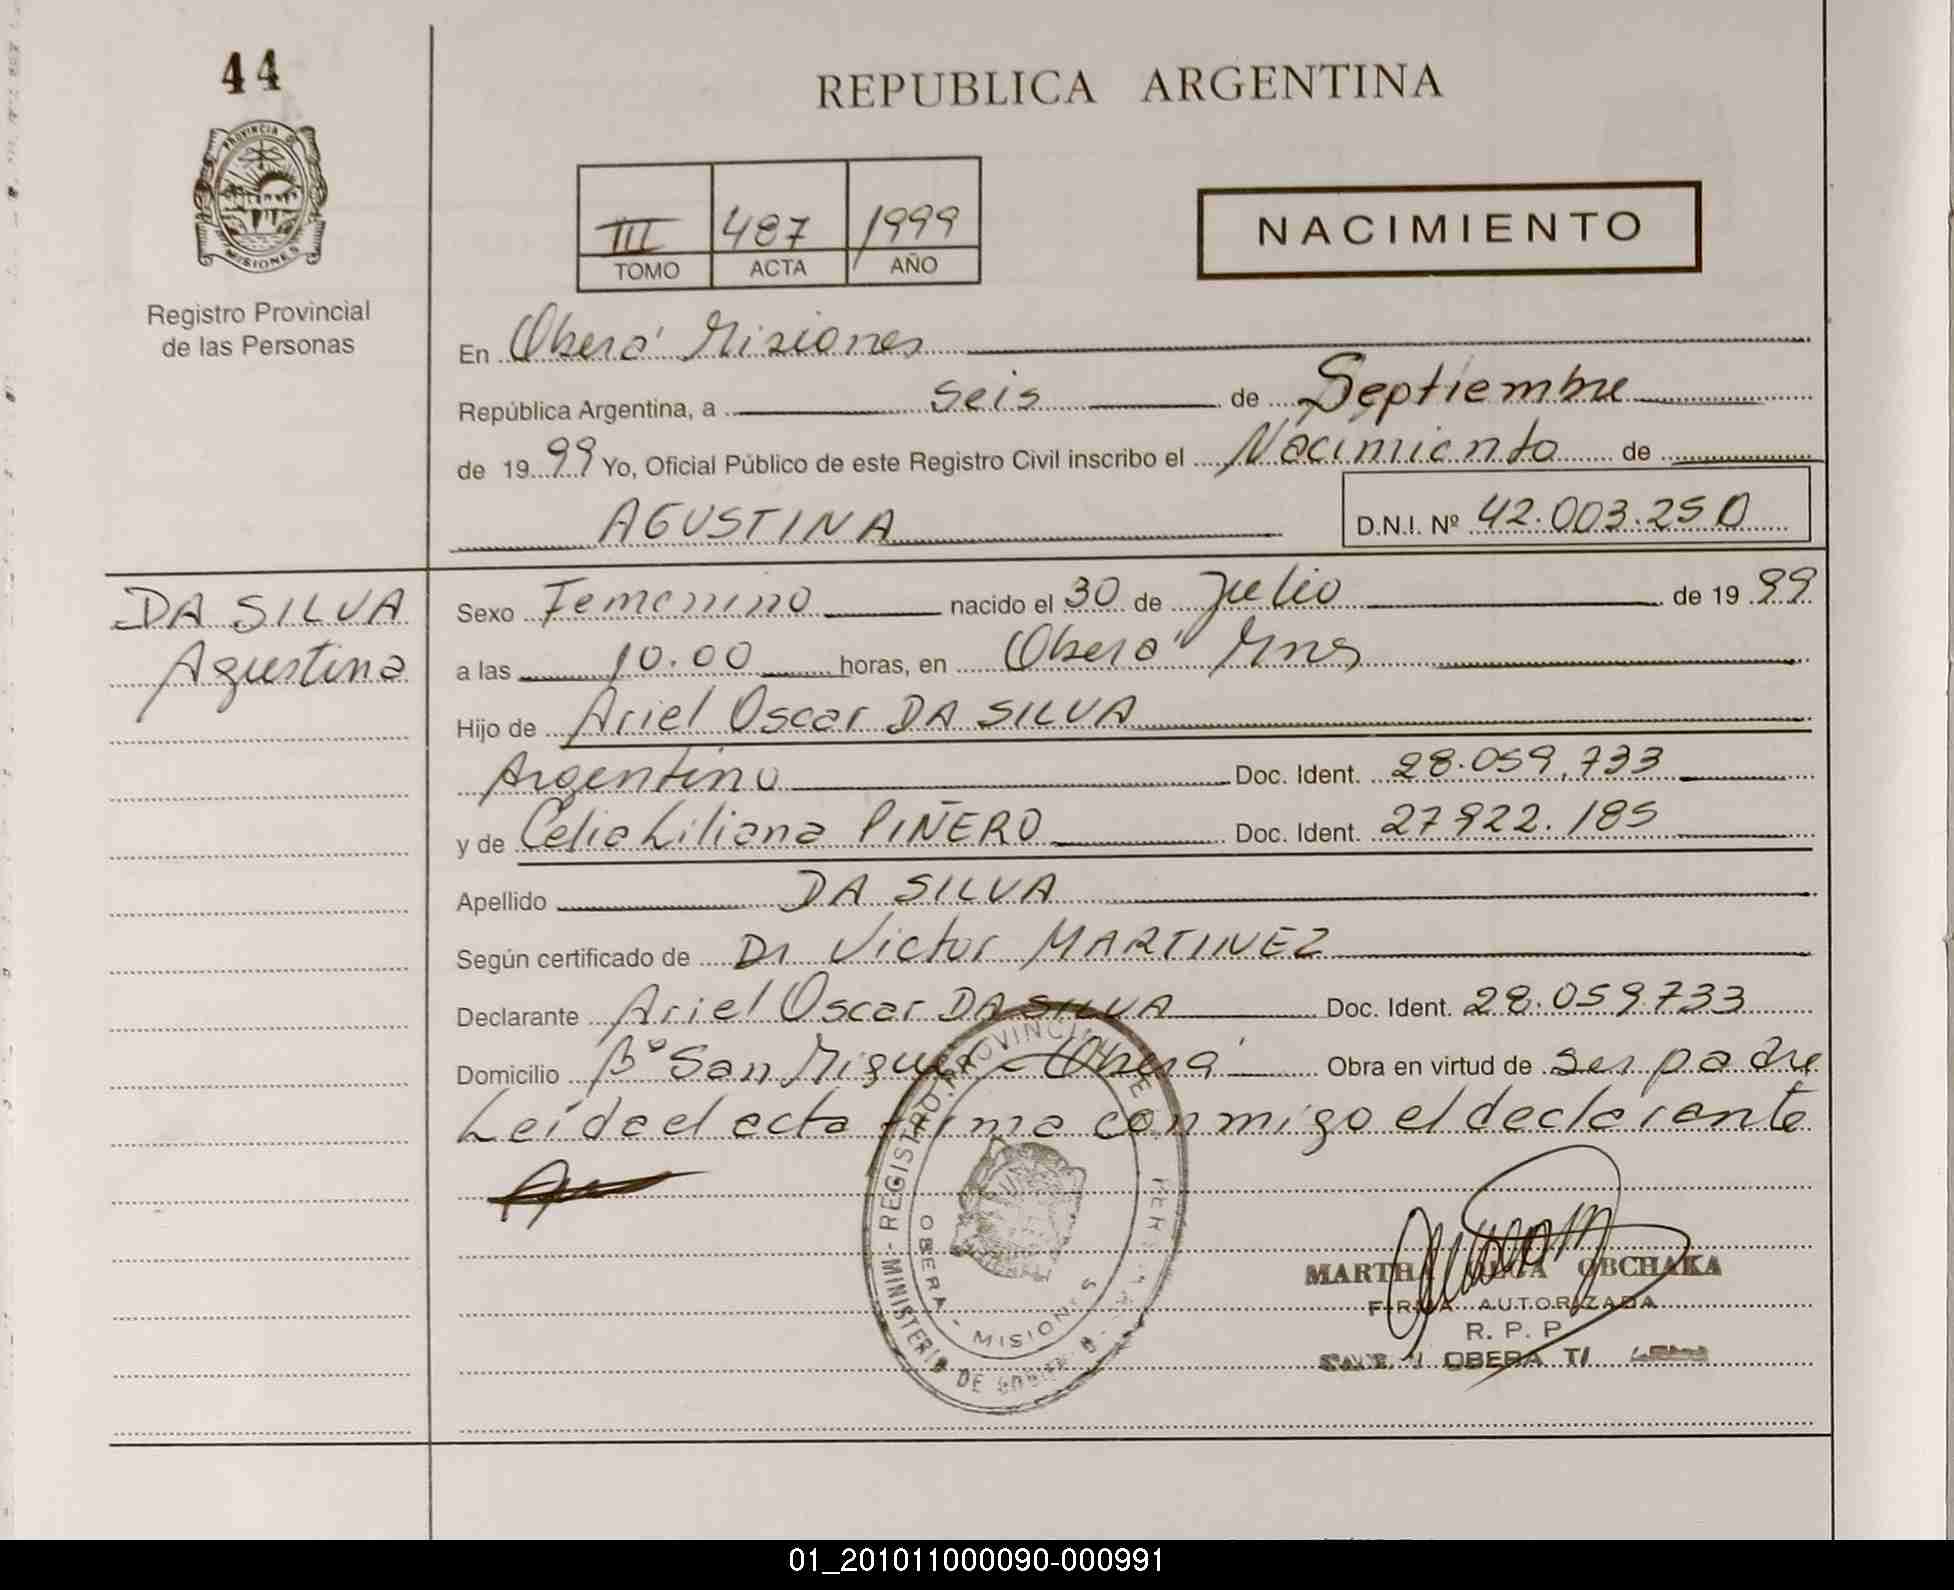 44
REPUBLICA ARGENTINA
PROVINCIA DE
MISIONES
Registro Provincial
de las Personas
III 487 1999
TOMO ACTA AÑO
NACIMIENTO
En Oberá Misiones
República Argentina, a seis de Septiembre
de 1999 Yo, Oficial Público de este Registro Civil inscribo el Nacimiento de
AGUSTINA D.N.I. Nº 42.003.250
DA SILVA
Agustina
Sexo Femenino nacido el 30 de Julio de 1999
a las 10.00 horas, en Oberá Mns
Hijo de Ariel Oscar DA SILVA
Argentino Doc. Ident. 28.059.733
y de Celia Liliana PIÑERO Doc. Ident. 27922.185
Apellido DA SILVA
Según certificado de Dr Victor MARTINEZ
Declarante Ariel Oscar DA SILVA Doc. Ident. 28.059.733
Domicilio Bº San Miguel - Oberá Obra en virtud de ser padre
Leída el acta firma conmigo el declarante
REGISTRO PROVINCIAL DE
MINISTERIO DE
OBERA - MISIONES
MARTHA OBCHAKA
FIRMA AUTORIZADA
R. P. P
OBERA
01_201011000090-000991